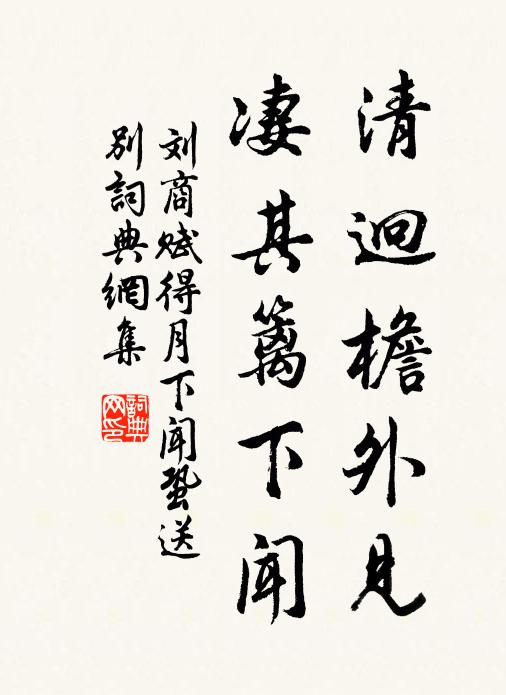 清迥檐外見
凄其篱下聞
刘商賦得月下闻蛩送
别詞典網集
詞典网印